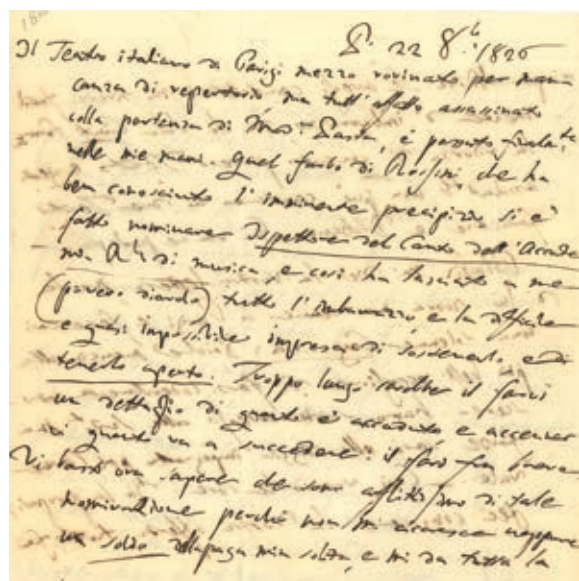 P. 22 8.b 1826
Il Teatro italiano di Parigi mezzo rovinato per man
canza di repertorio, ma tutt'affatto assassinato
colla partenza di Mad: Pasta, è passato finalte
nelle mie mani. Quel furbo di Rossini, che ha
ben conosciuto l'imminente precipizio si è
fatto nominare Ispettore del Canto dell'Accade
mia Rle di musica, e così ha lasciato a me
(povero diavolo) tutto l'imbarazzo, e la difficile
e quasi impossibile impresa di sostenerlo, e di
tenerlo aperto. Troppo lungo sarebbe il farvi
un dettaglio di quanto è accaduto e accennar
vi quanto va a succedere: il
Vi basti ora sapere che sono afflittissimo di tale
nominazione perché non mi accresce neppure
un soldo alla paga mia solita, e mi da tutta la